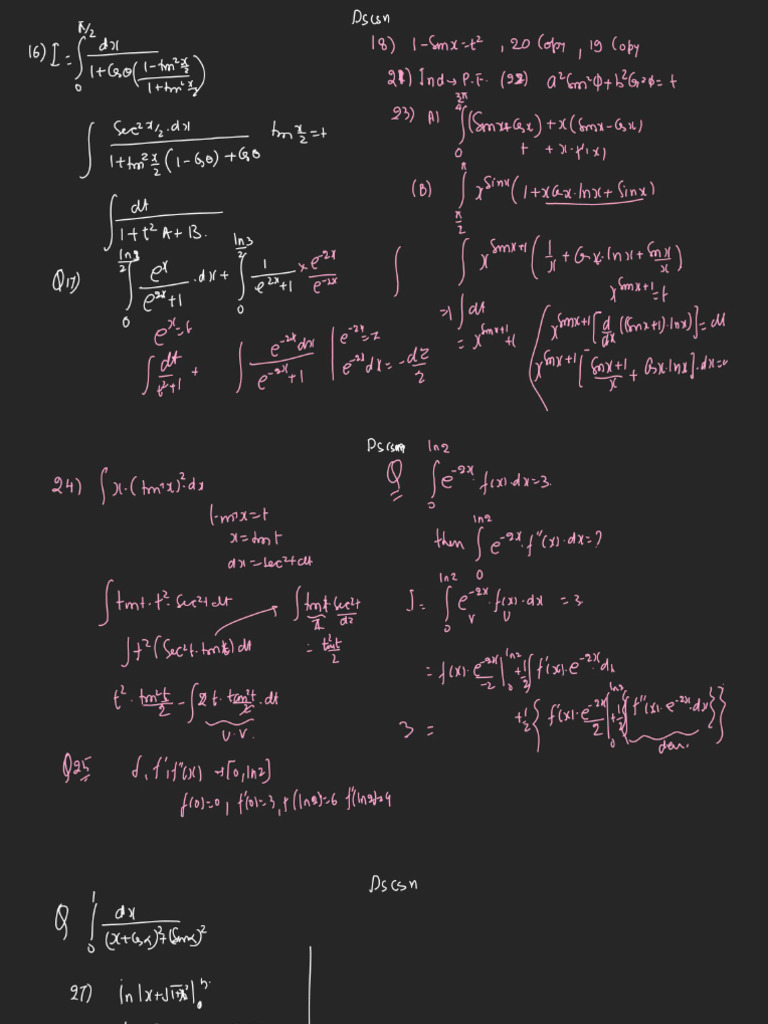 Dscsn
16) I = ∫₀^{π/2} dx / (1 + Cosθ ((1 - tan² x/2) / (1 + tan² x/2)))
∫ Sec² x/2 · dx / (1 + tan² x/2 (1 - Cosθ) + Cosθ)   tan x/2 = t
∫ dt / (1 + t² A + B.)
Q17) ∫₀^{ln3/2} eˣ / (e²ˣ + 1) · dx + ∫₀^{ln3/2} 1 / (e²ˣ + 1) × e⁻²ˣ / e⁻²ˣ
eˣ = t
∫ dt / (t² + 1) + ∫ e⁻²ˣ dx / (e⁻²ˣ + 1) | e⁻²ˣ = z
e⁻²ˣ dx = -dz/2
18) 1 - Sinx = t² , 20 Copy , 19 Copy
21) Ind → P.F. (22) a² Sin²Φ + b² Cos²Φ = t
23) A) ∫₀ (Sinx + Cosx) + x (Sinx - Cosx)
f + x · f'(x)
(B) ∫_{π/2}^{π} x^{Sinx} (1 + x Cosx · lnx + Sinx)
∫ ∫ x^{Sinx+1} (1/x + Cosx · lnx + Sinx/x)
x^{Sinx+1} = t
⇒ ∫ dt
= x^{Sinx+1}
x^{Sinx+1} [d/dx ((Sinx+1) · lnx)] = dt
x^{Sinx+1} [(Sinx+1)/x + Cosx · lnx] · dx =
24) ∫ x · (tan⁻¹x)² · dx
tan⁻¹x = t
x = tan t
dx = Sec² t dt
∫ tan t · t² · Sec² t dt
∫ tan t Sec² t / dz
∫ t² (Sec² t · tan t) dt
= tan² t / 2
t² · tan² t / 2 - ∫ 2t · tan² t / 2 · dt
U · V.
Q25 f, f', f''(x) → [0, ln2]
f(0) = 0, f'(0) = 3, f(ln2) = 6 f'(ln2) = 4
Dscsn
Q ∫₀^{ln2} e⁻²ˣ · f(x) · dx = 3.
then ∫₀^{ln2} e⁻²ˣ · f''(x) · dx = ?
I = ∫₀^{ln2} e⁻²ˣ · f(x) · dx = 3
V U
= f(x) · e⁻²ˣ / -2 |₀^{ln2} + 1/2 ∫ f'(x) · e⁻²ˣ dx
3 = + 1/2 { f'(x) · e⁻²ˣ / 2 |₀^{ln2} + 1/2 { ∫ f''(x) · e⁻²ˣ dx } }
Dscsn
Q ∫₀¹ dx / ((x + Cosα)² + (Sinα)²)
27) ln |x + √(1 + x²)|₀